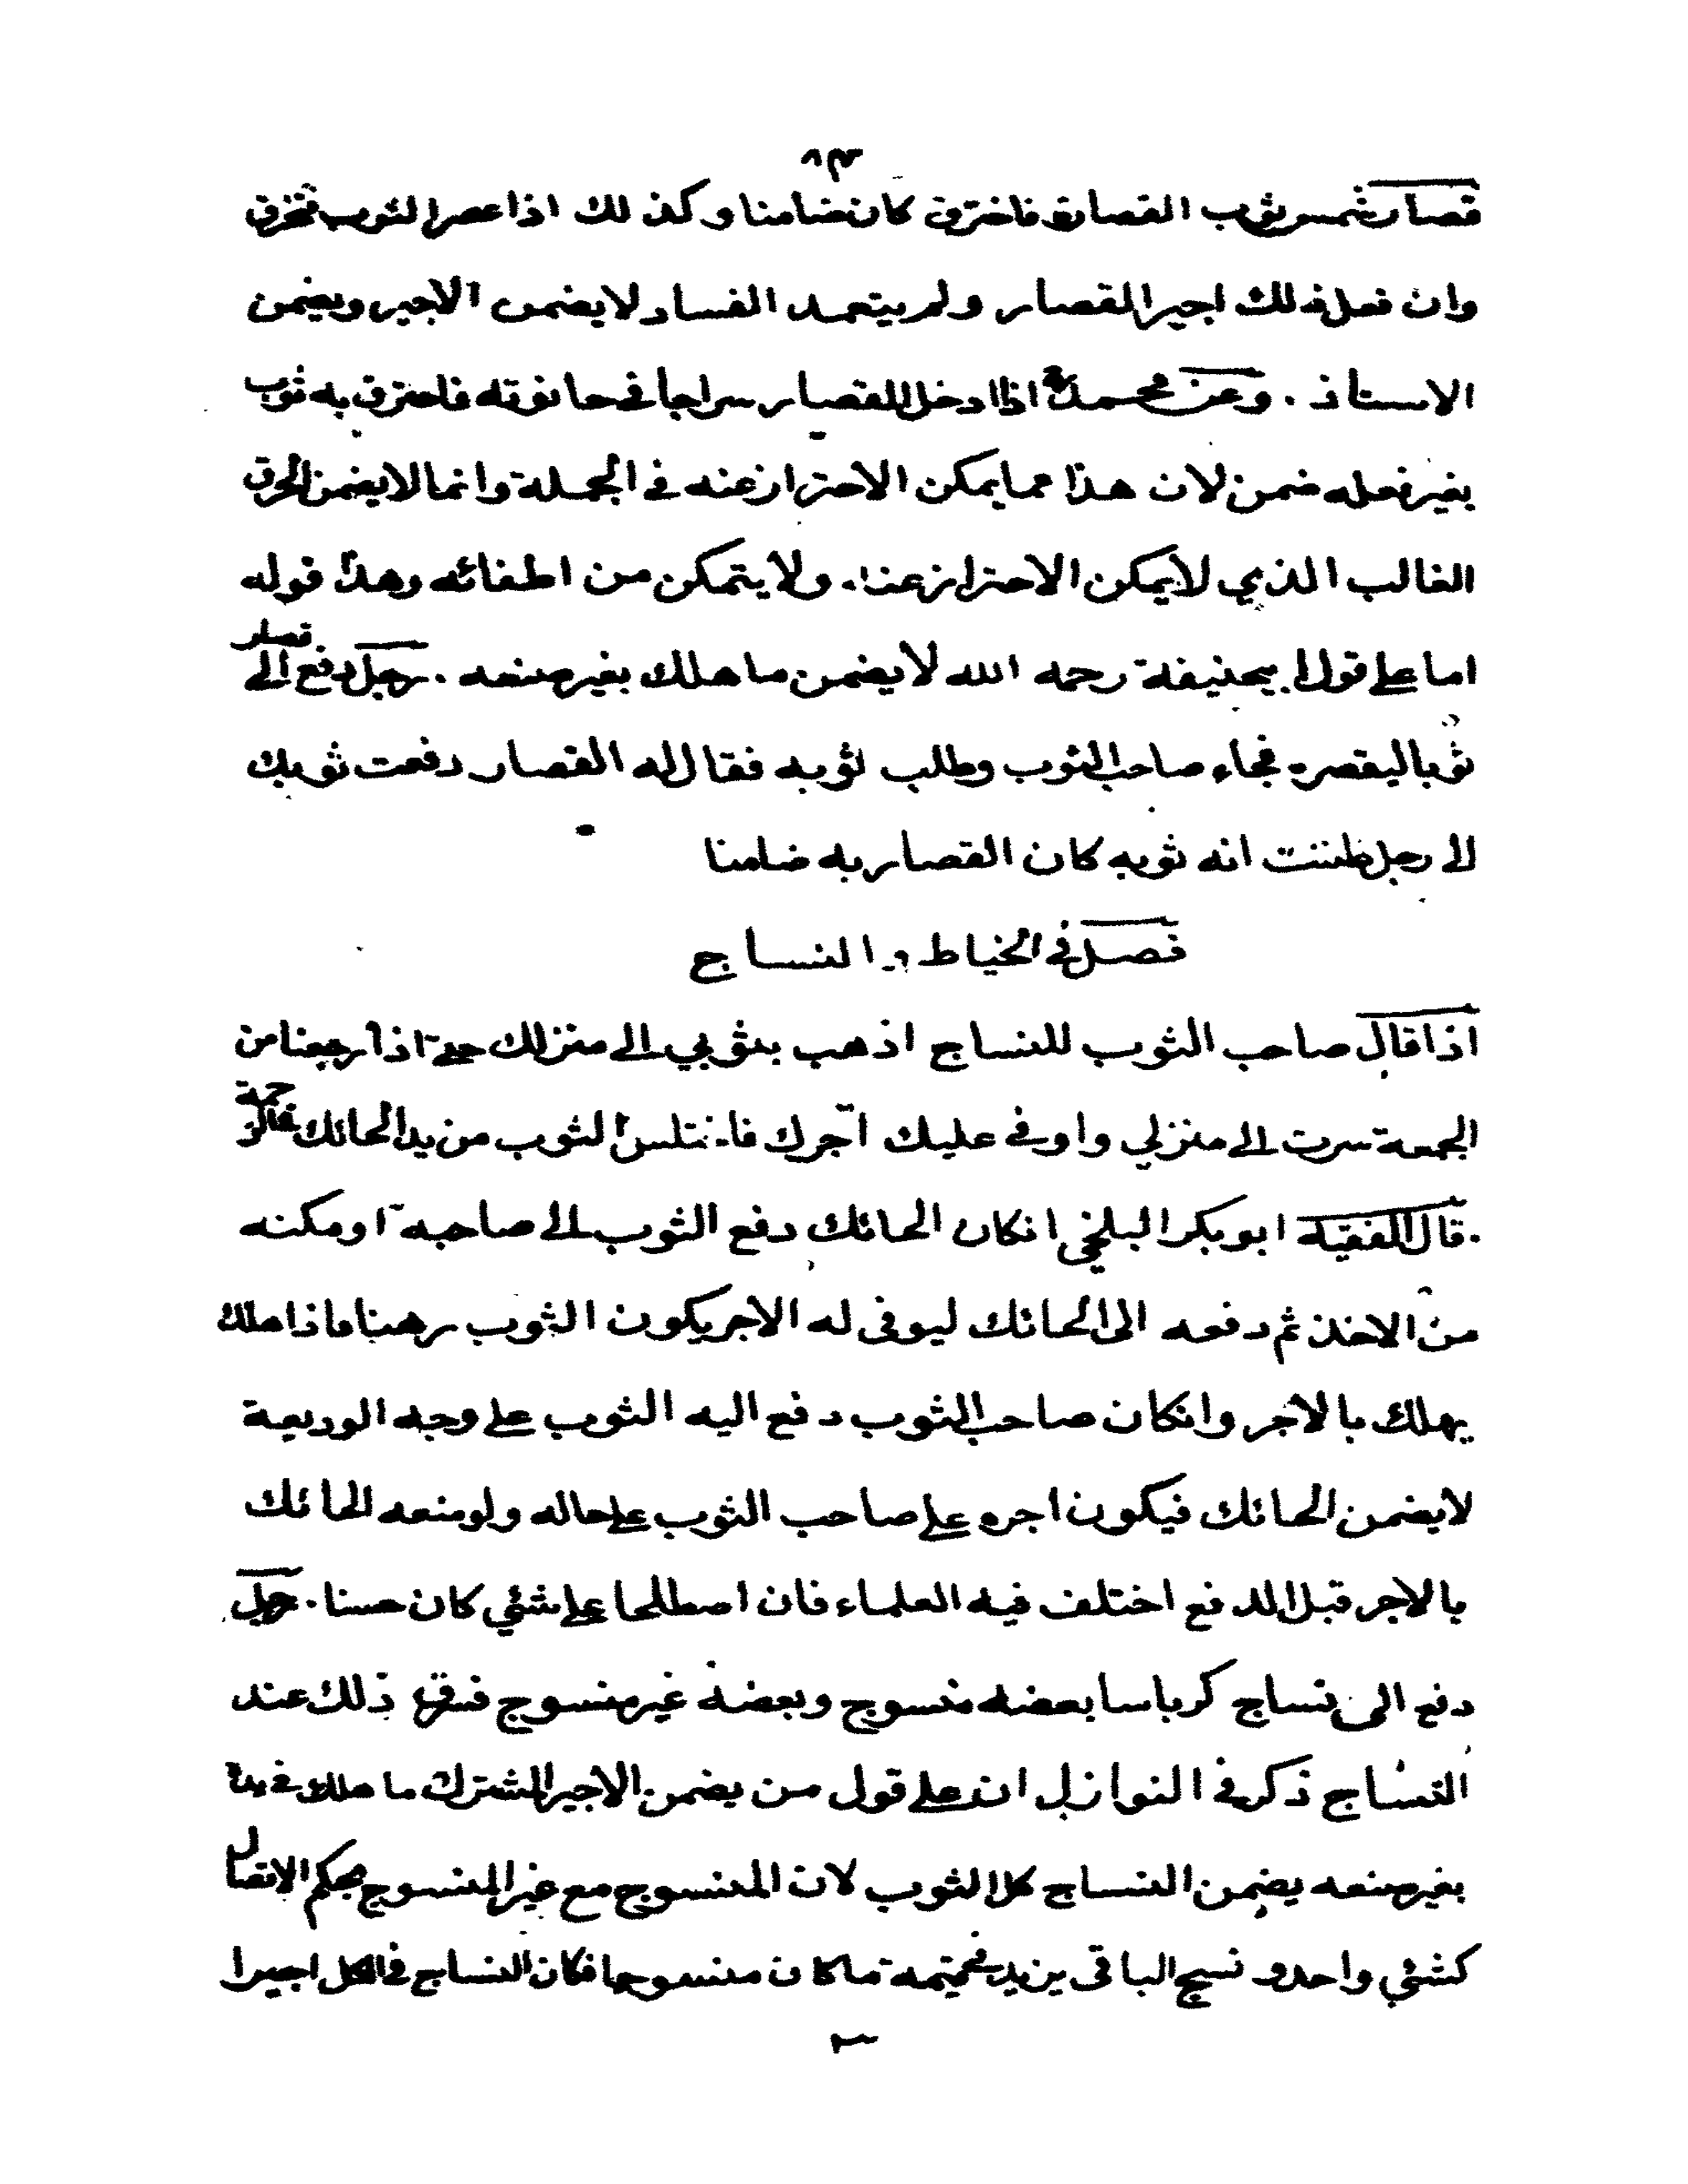 قصار شمس ثوب القصارة فاخترق كان ضامنا وكذلك اذا عصر الثوب فتخرق
وان فعل ذلك اجير القصار ولم يتعمد الفساد لا يضمن الاجير ويضمن
الاستاذ . وعن محمد اذا ادخل للقصار سراجا في حانوته فاحترق به ثوب
بغير فعله ضمن لان هذا مما يمكن الاحتراز عنه في الجملة وانما لا يضمن الحرق
الغالب الذي لا يمكن الاحتراز عنه ولا يتمكن من اطفائه وهذا قوله
اما على قول ابيحنيفة رحمه الله لا يضمن ما هلك بغير صنعه . رجل دفع الى قصار
ثوبا ليقصره فجاء صاحب الثوب وطلب ثوبه فقال له القصار دفعت ثوبك
الى رجل ظننت انه ثوبه كان القصار به ضامنا
فصل في الخياط والنساج
اذا قال صاحب الثوب للنساج اذهب بثوبي الى منزلك حتى اذا رجعنا من
الجمعة سرت الى منزلي واوفي عليك آجرك فاختلس الثوب من يد الحائك في الزحمة
. قال الفقيه ابو بكر البلخي انكان الحائك دفع الثوب الى صاحبه او مكنه
من الاخذ ثم دفعه الى الحائك ليوفى له الاجر يكون الثوب رهنا فاذا هلك
يهلك بالاجر وانكان صاحب الثوب دفع اليه الثوب على وجه الوديعة
لا يضمن الحائك فيكون اجره على صاحب الثوب على حاله ولو منعه الحائك
بالاجر قبل الدفع اختلف فيه العلماء فان اصطلحا على شئي كان حسنا . رجل
دفع الى نساج كرباسا بعضه منسوج وبعضه غير منسوج فسرق ذلك عند
النساج ذكر في النوازل ان على قول من يضمن الاجير المشترك ما هلك في يده
بغير صنعه يضمن النساج كل الثوب لان المنسوج مع غير المنسوج بحكم الاتصال
كشئي واحد و نسج الباقى يزيد في قيمة ما كان منسوجا فكان النساج في الكل اجيرا